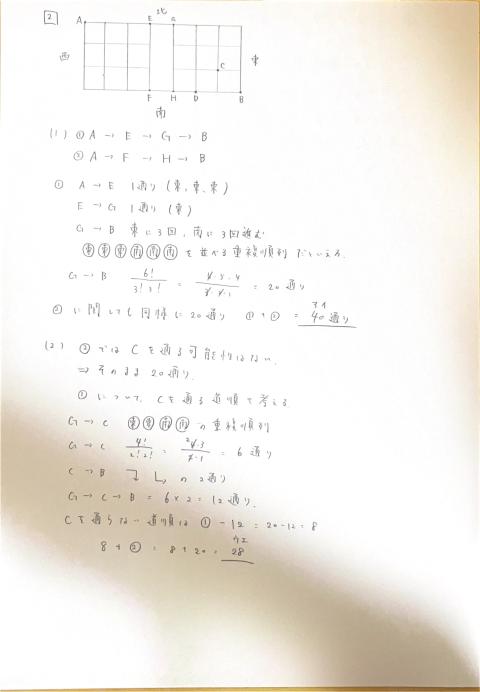 2
北
A E G
西 東
C
F H D B
南
(1) ① A → E → G → B
② A → F → H → B
① A → E 1通り (東、東、東)
E → G 1通り (東)
G → B 東に3回、南に3回進む
東東東南南南 を並べる重複順列だといえる。
G → B 6!/3!3! = 6・5・4/3・2・1 = 20通り
② に関しても同様に20通り ①+② = 40通り
(2) ② ではCを通る可能性はない。
⇒ そのまま20通り。
① について、Cを通る道順で考える
G → C 東東南南 の重複順列
G → C 4!/2!2! = 4・3/2・1 = 6 通り
C → B の2通り
G → C → B = 6×2 = 12通り。
Cを通らない道順は ① -12 = 20-12 = 8
8 + ② = 8 + 20 = 28